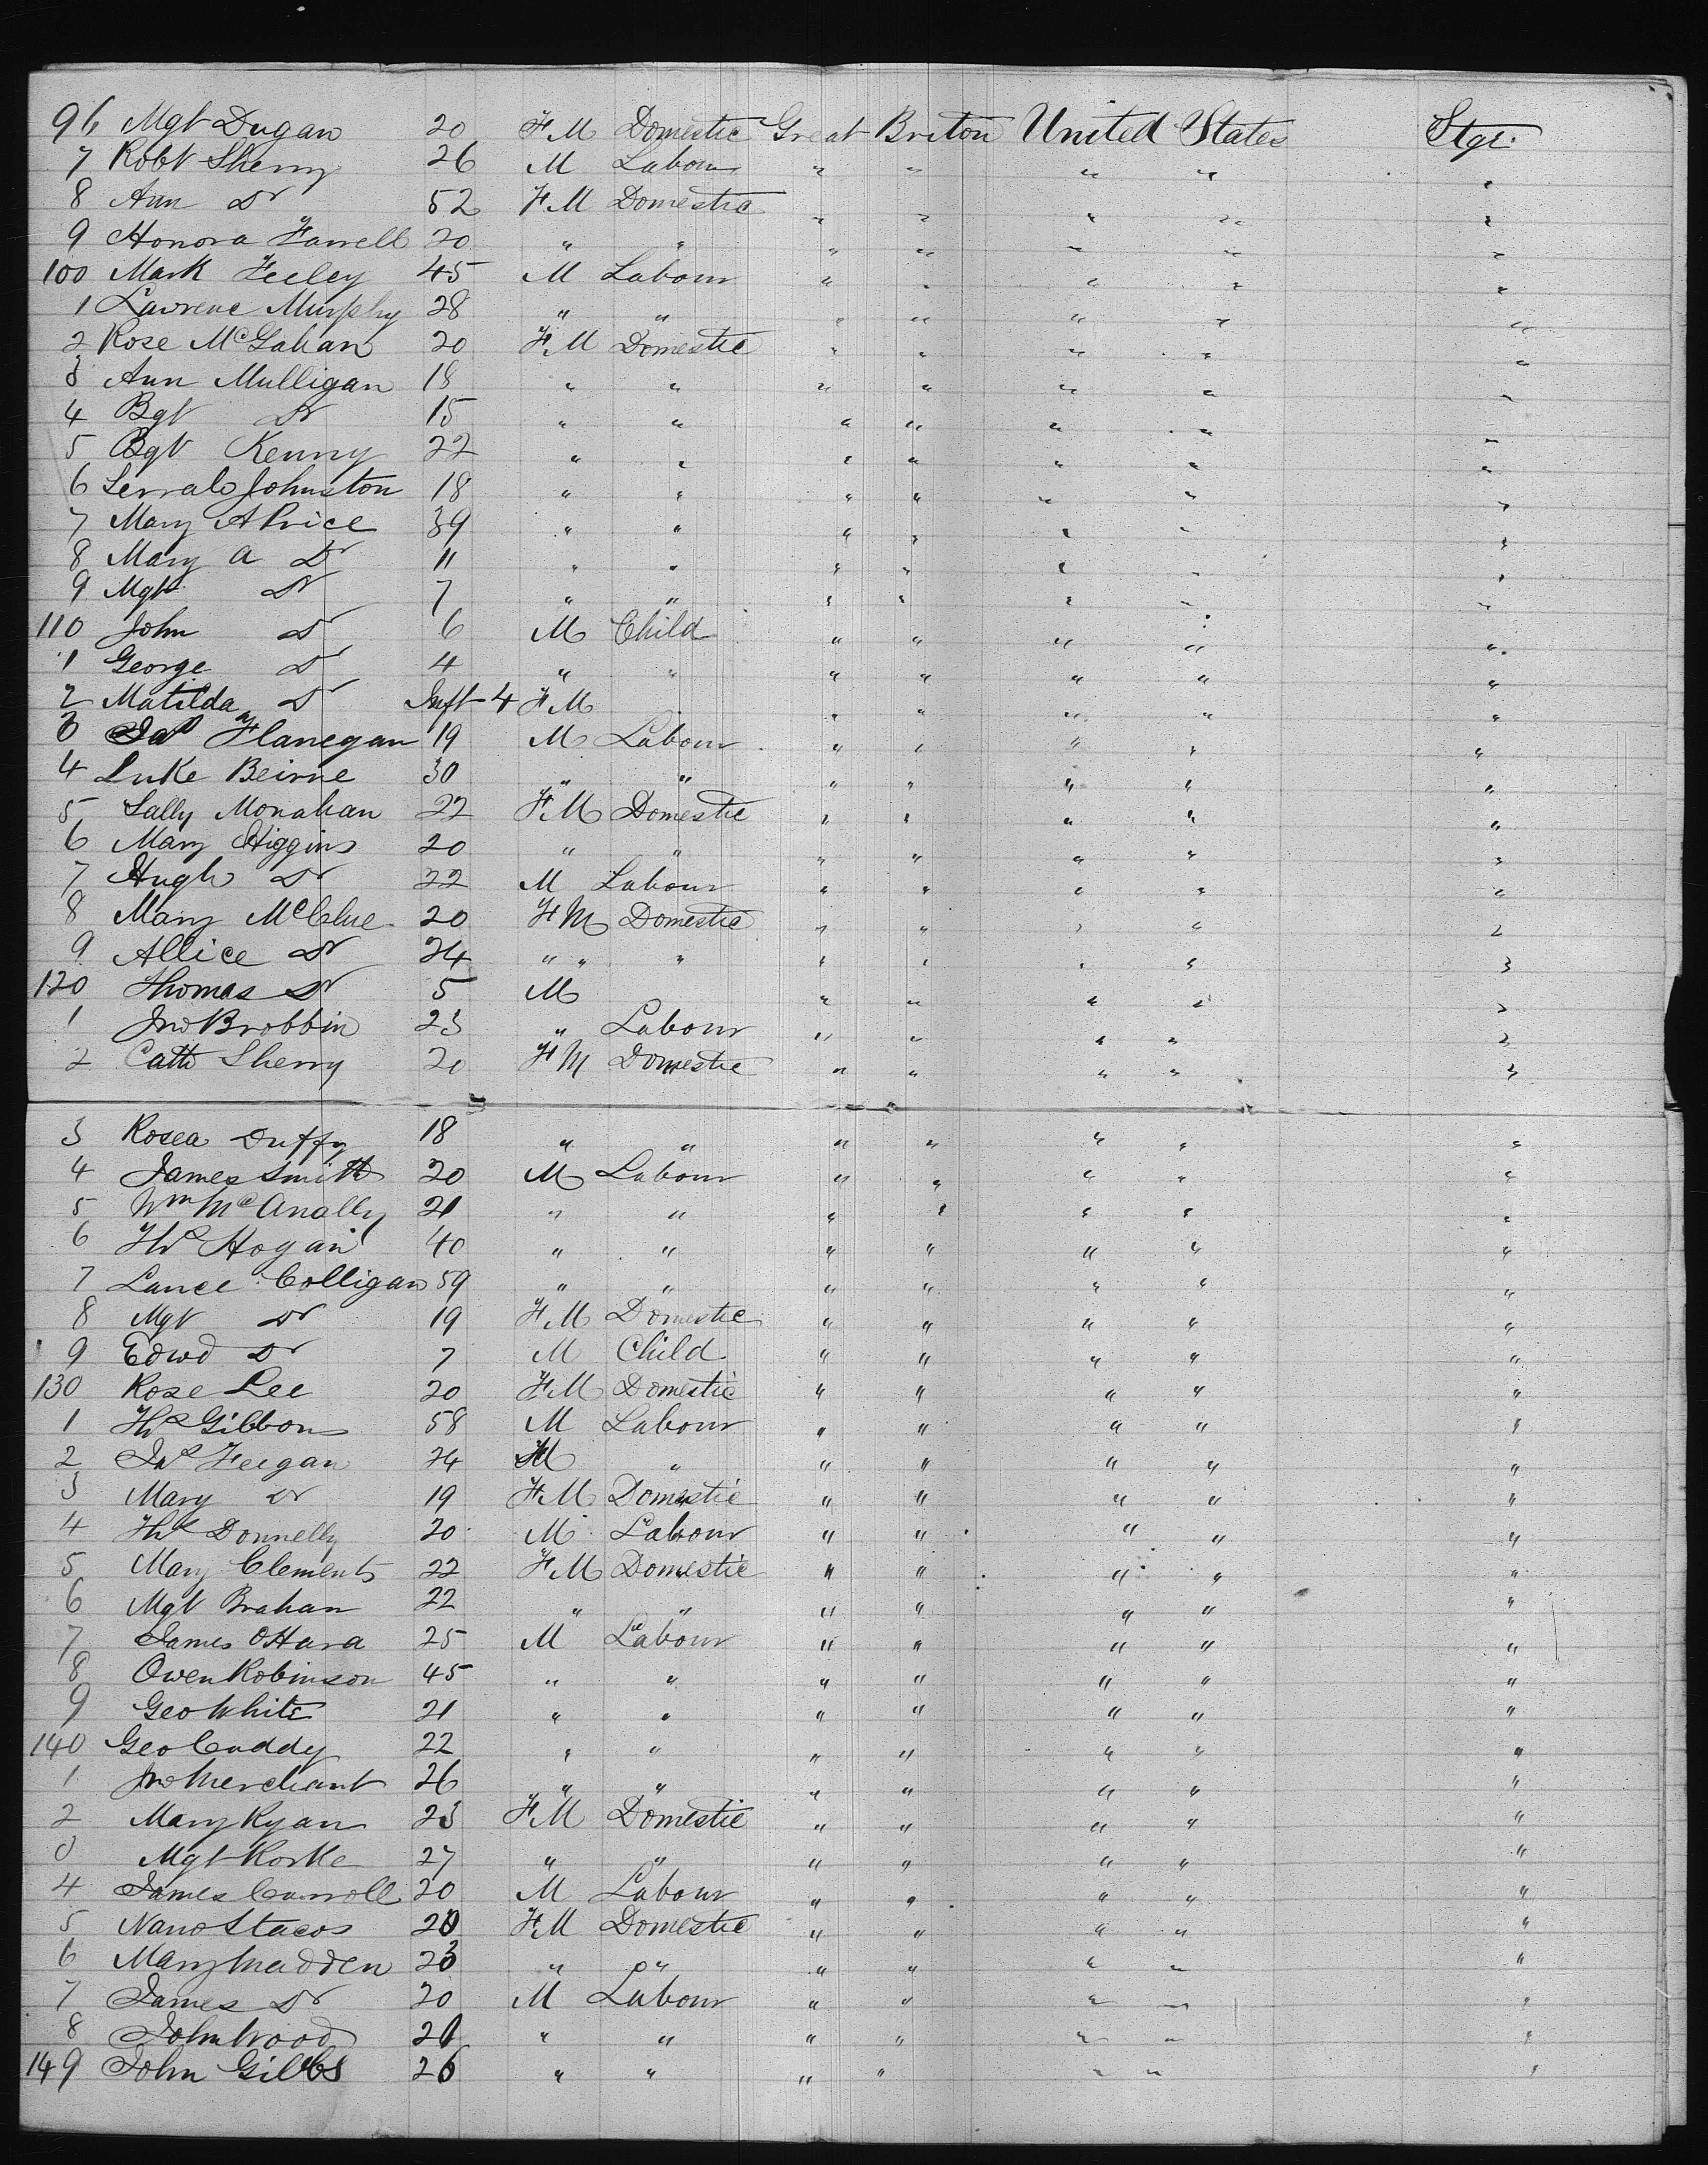 96 Mgt Dugan 20 FM Domestic Great Briton United States Stge.
7 Robt Sherry 26 M Labour " " " " "
8 Ann Do 52 FM Domestic " " " " "
9 Honora Farrell 20 " " " " " " "
100 Mark Feeley 45 M Labour " " " " "
1 Lawrence Murphy 28 " " " " " " "
2 Rose McGahan 20 FM Domestic " " " " "
3 Ann Mulligan 18 " " " " " " "
4 Bgt Do 15 " " " " " " "
5 Bgt Kenny 22 " " " " " " "
6 Johnston 18 " " " " " " "
7 Mary A Price 39 " " " " " " "
8 Mary A Do 11 " " " " " " "
9 Mgt Do 7 " " " " " " "
110 John Do 6 M Child " " " " "
1 George Do 4 " " " " " " "
2 Matilda Do Inft 4 FM " " " " "
3 Jas Flanegan 19 M Labour " " " " "
4 Luke Beirne 30 " " " " " " "
5 Sally Monahan 22 FM Domestic " " " " "
6 Mary Higgins 20 " " " " " " "
7 Hugh Do 22 M Labour " " " " "
8 Mary McClue 20 FM Domestic " " " " "
9 Allice Do 24 " " " " " " " "
120 Thomas Do 5 M " " " " "
1 Jno Brobbin 23 " Labour " " " " "
2 Cath Sherry 20 FM Domestic " " " " "
3 Rosea Duffy 18 " " " " " " "
4 James Smith 20 M Labour " " " " "
5 Wm McAnally 21 " " " " " " "
6 Ths Hogan 40 " " " " " " "
7 Lance Colligan 59 " " " " " " "
8 Mgt Do 19 FM Domestic " " " " "
9 Edwd Do 7 M Child " " " " "
130 Rose Lee 20 FM Domestic " " " " "
1 Ths Gibbons 58 M Labour " " " " "
2 Jas Feegan 24 M " " " " " "
3 Mary Do 19 FM Domestic " " " " "
4 Ths Donnelly 20 M Labour " " " " "
5 Mary Clements 22 FM Domestic " " " " "
6 Mgt Brahan 22 " " " " " " "
7 James OHara 25 M Labour " " " " "
8 Owen Robinson 45 " " " " " " "
9 Geo White 21 " " " " " " "
140 Geo Cuddy 22 " " " " " " "
1 Jno Merchant 26 " " " " " " "
2 Mary Ryan 23 FM Domestic " " " " "
3 Mgt Rorke 27 " " " " " " "
4 James Carroll 20 M Labour " " " " "
5 Nano Stacos 20 FM Domestic " " " " "
6 Mary Madden 23 " " " " " " "
7 James Do 20 M Labour " " " " "
8 John Wood 21 " " " " " " "
149 John Gibbs 26 " " " " " " "